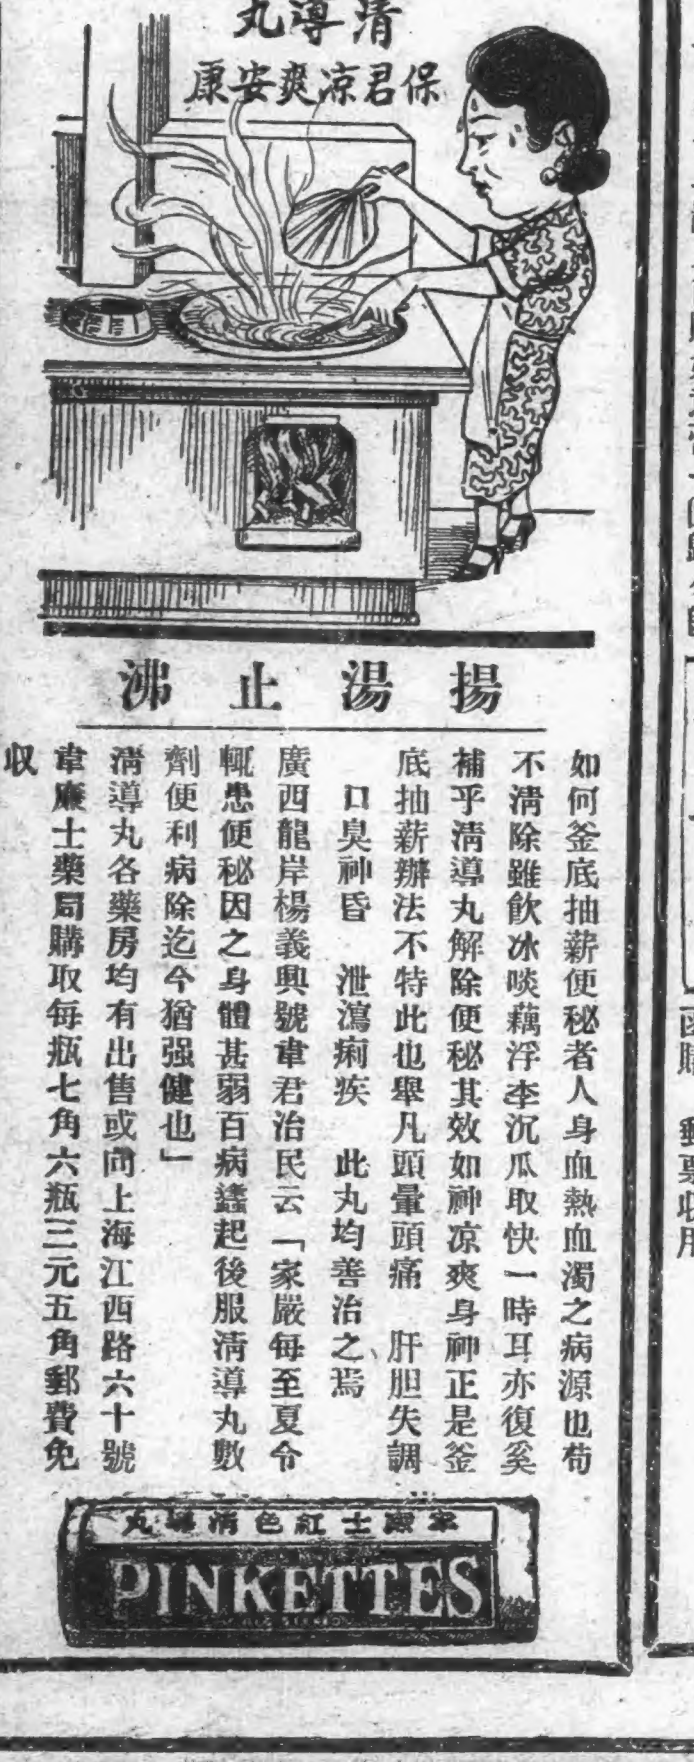 清導丸
保君涼爽安康
揚湯止沸
如何釜底抽薪便秘者人身血熱血濁之病源也苟
不清除雖飲冰啖藕浮李沉瓜取快一時耳亦復奚
補乎清導丸解除便秘其效如神凉爽身神正是釜
底抽薪辦法不特此也舉凡頭暈頭痛　肝胆失調
口臭神昏　泄瀉痢疾　此丸均善治之焉
廣西龍岸楊義興號韋君治民云「家嚴每至夏令
輒患便秘因之身體甚弱百病蠭起後服淸導丸數
劑便利病除迄今猶强健也」
淸導丸各藥房均有出售或向上海江西路六十號
韋廉士藥局購取每瓶七角六瓶三元五角郵費免
収
韋廉士紅色清導丸
PINKETTES
函購
郵票收用